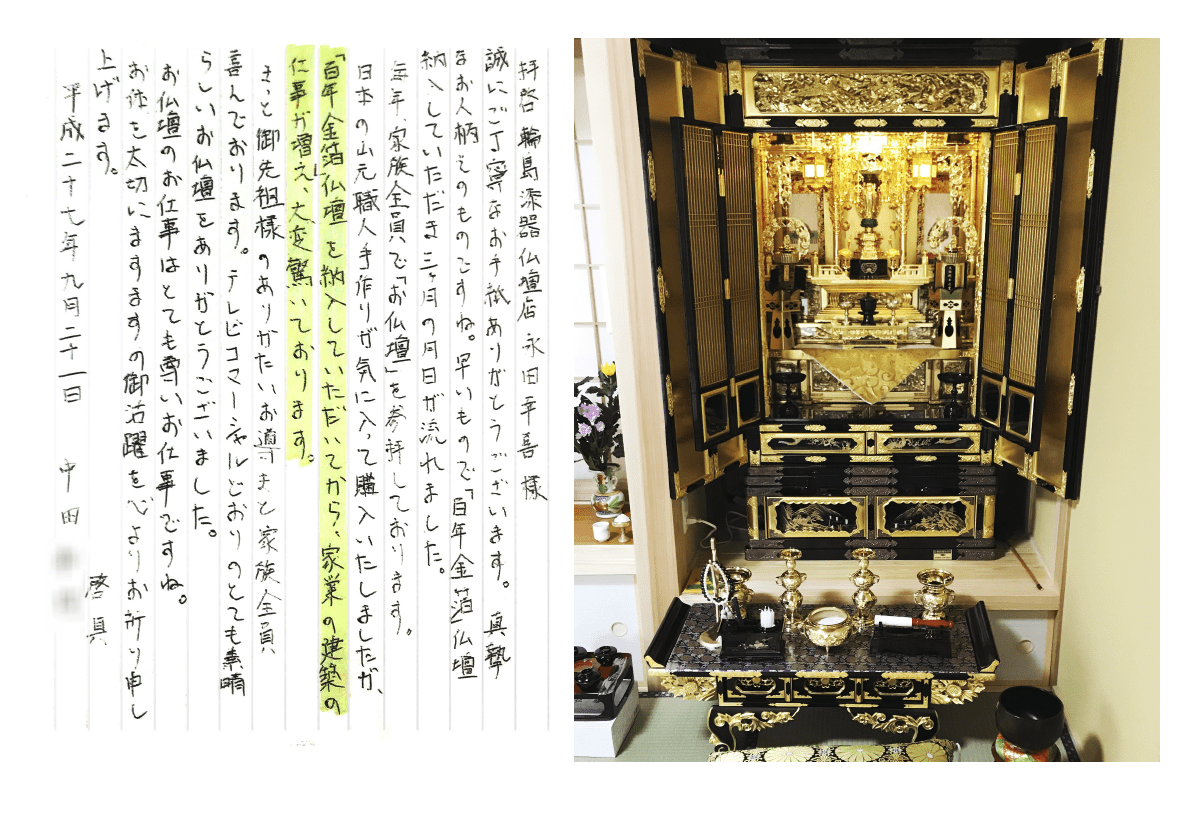 拝啓 輪島漆器仏壇店 永田幸喜 様
誠にご丁寧なお手紙ありがとうございます。真摯
なお人柄そのものですね。早いもので「百年金箔」仏壇
納入していただき三ヶ月の月日が流れました。
毎年、家族全員で「お仏壇」を参拝しております。
日本の山元職人手作りが気に入って購入いたしましたが、
「百年金箔」仏壇を納入していただいてから、家業の建築の
仕事が増え、大変驚いております。
きっと御先祖様のありがたいお導きと家族全員
喜んでおります。テレビコマーシャルどおりのとても素晴
らしいお仏壇をありがとうございました。
お仏壇のお仕事はとても尊いお仕事ですね。
お体を大切にますますの御活躍を心よりお祈り申し
上げます。
平成二十七年九月二十一日 中田
啓具